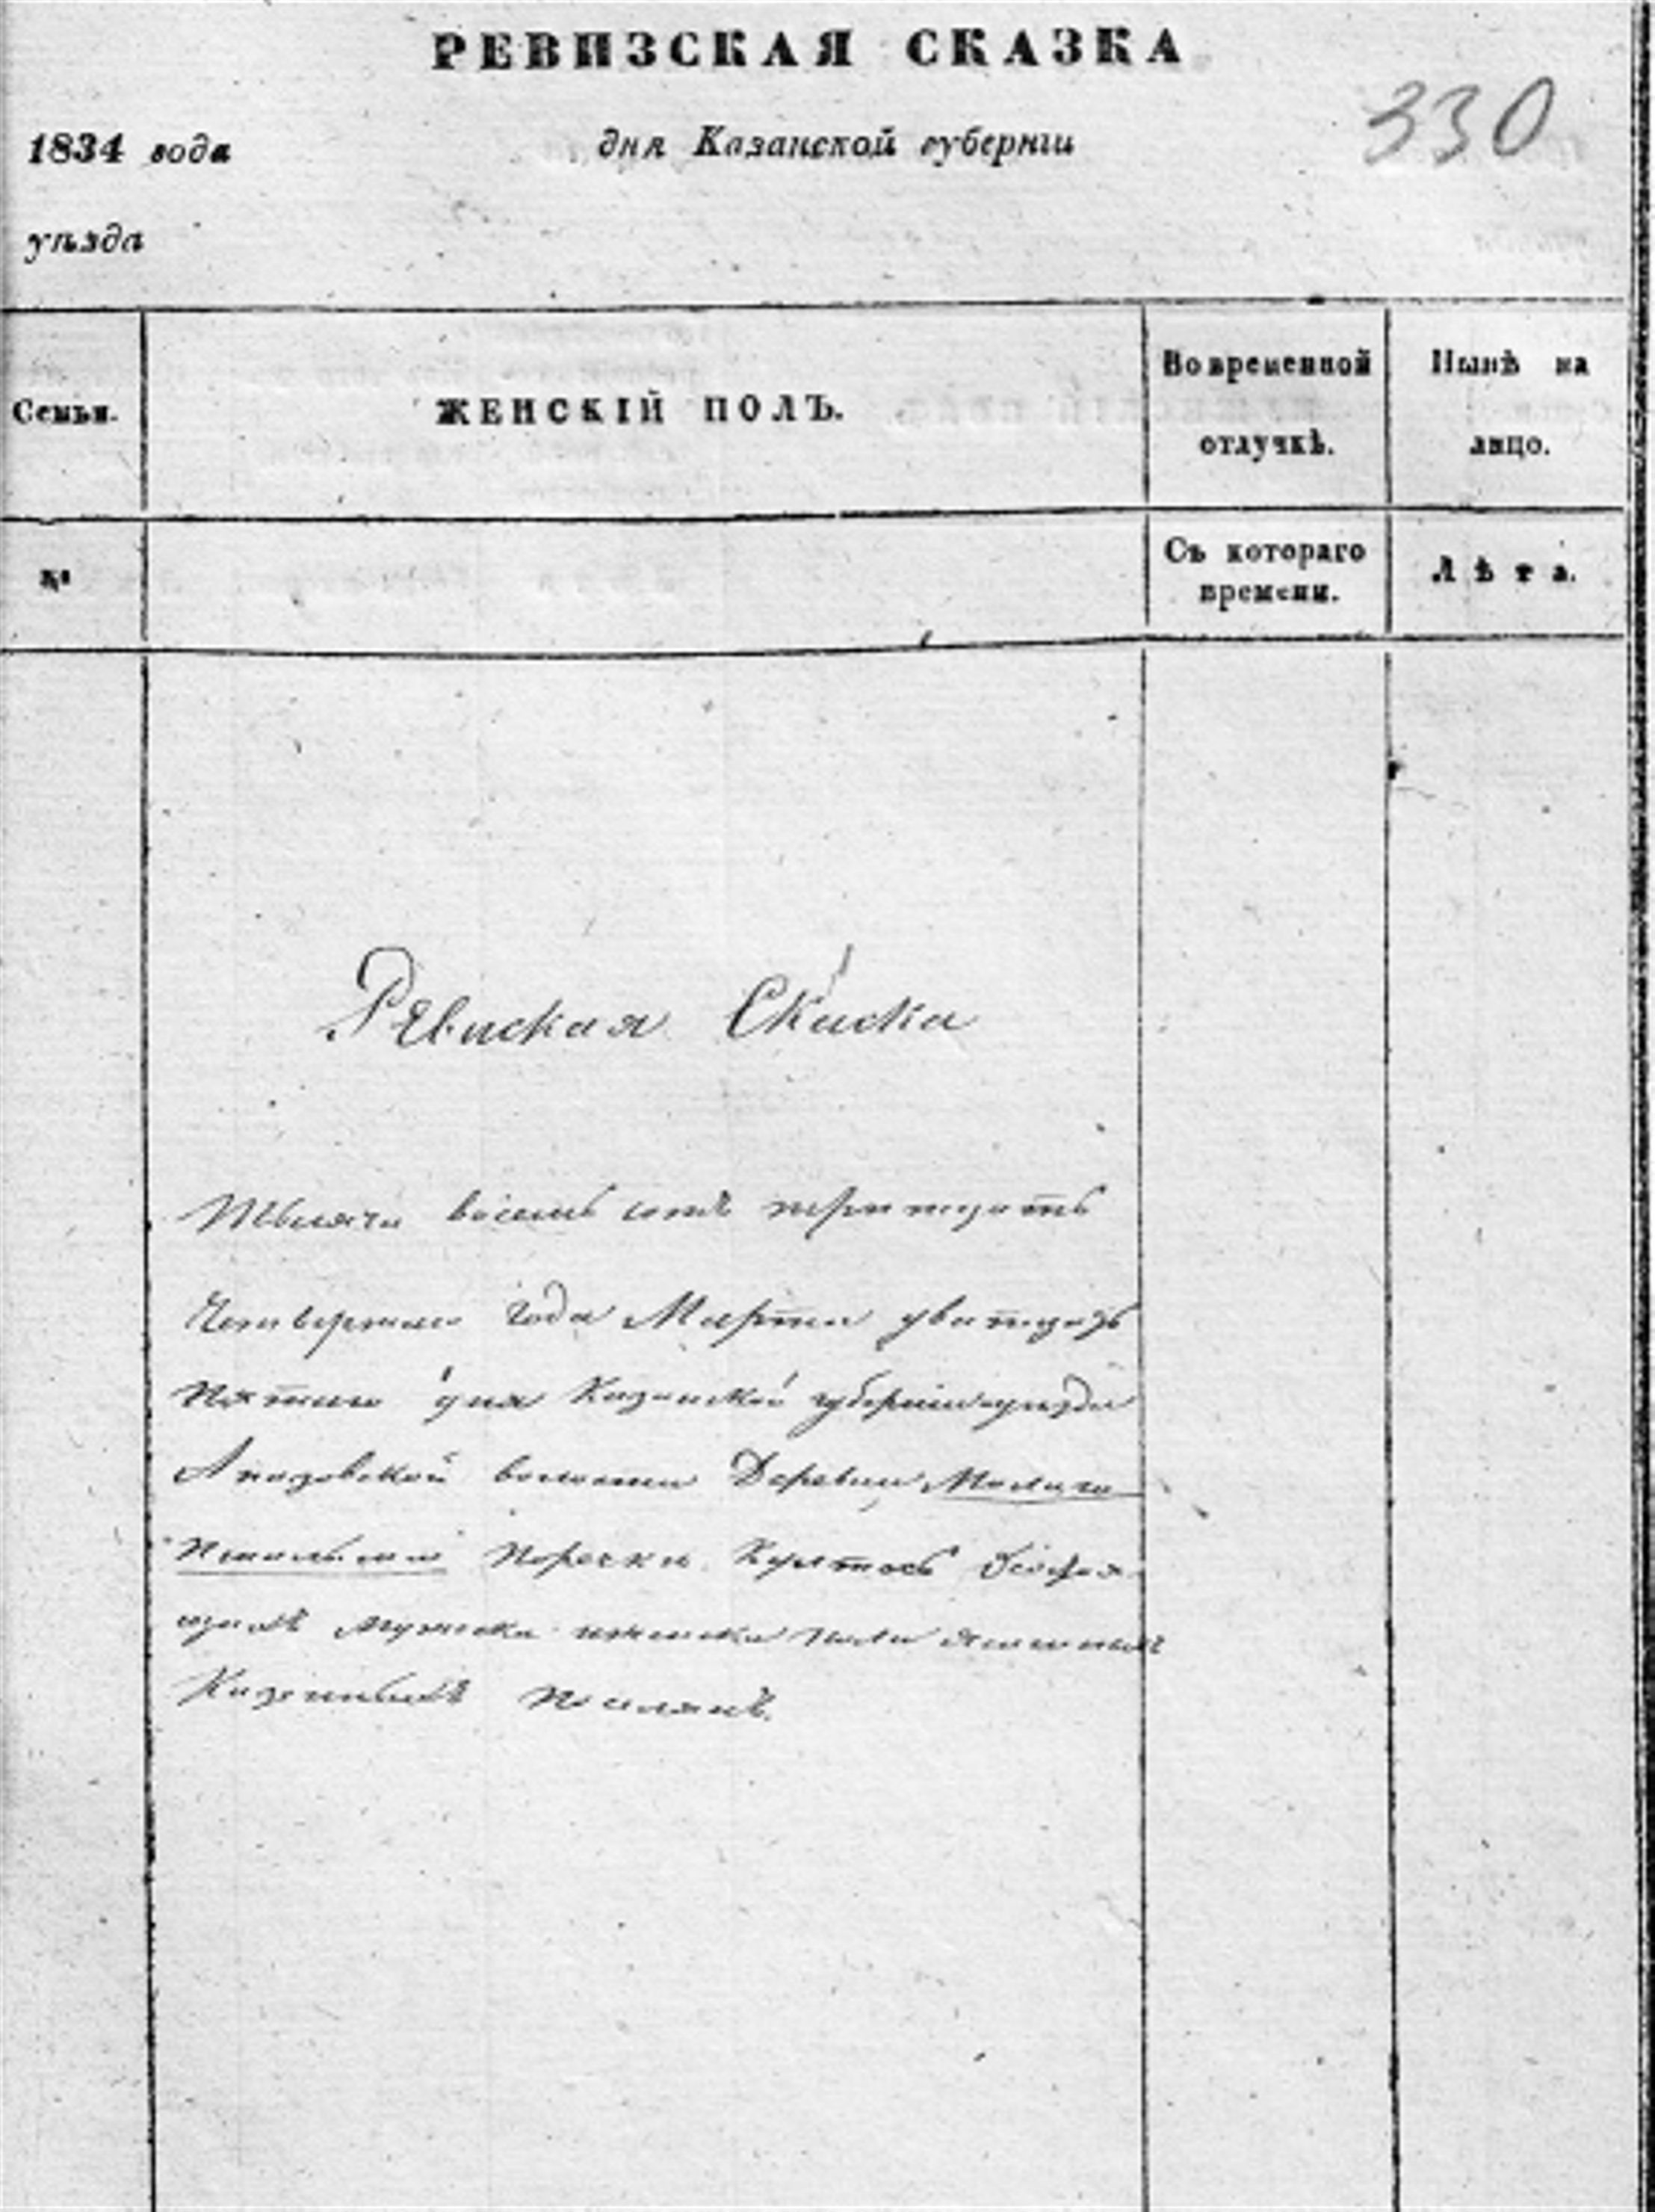 РЕВИЗСКАЯ СКАЗКА
330
1834 года дня Казанской губерніи
уѣзда
Семьи. ЖЕНСКІЙ ПОЛЪ. Во временной отлучкѣ. Нынѣ на лицо.
№ Съ котораго времени. Лѣта.
Ревиская Скаска
Тысяча восемь сотъ тритцать
Четвертаго года Марта дватцать
пятаго дня Казанской губерніи уезда
волости Деревни
Поречки
мужеска и женска пола
Казенныхъ поселянъ.